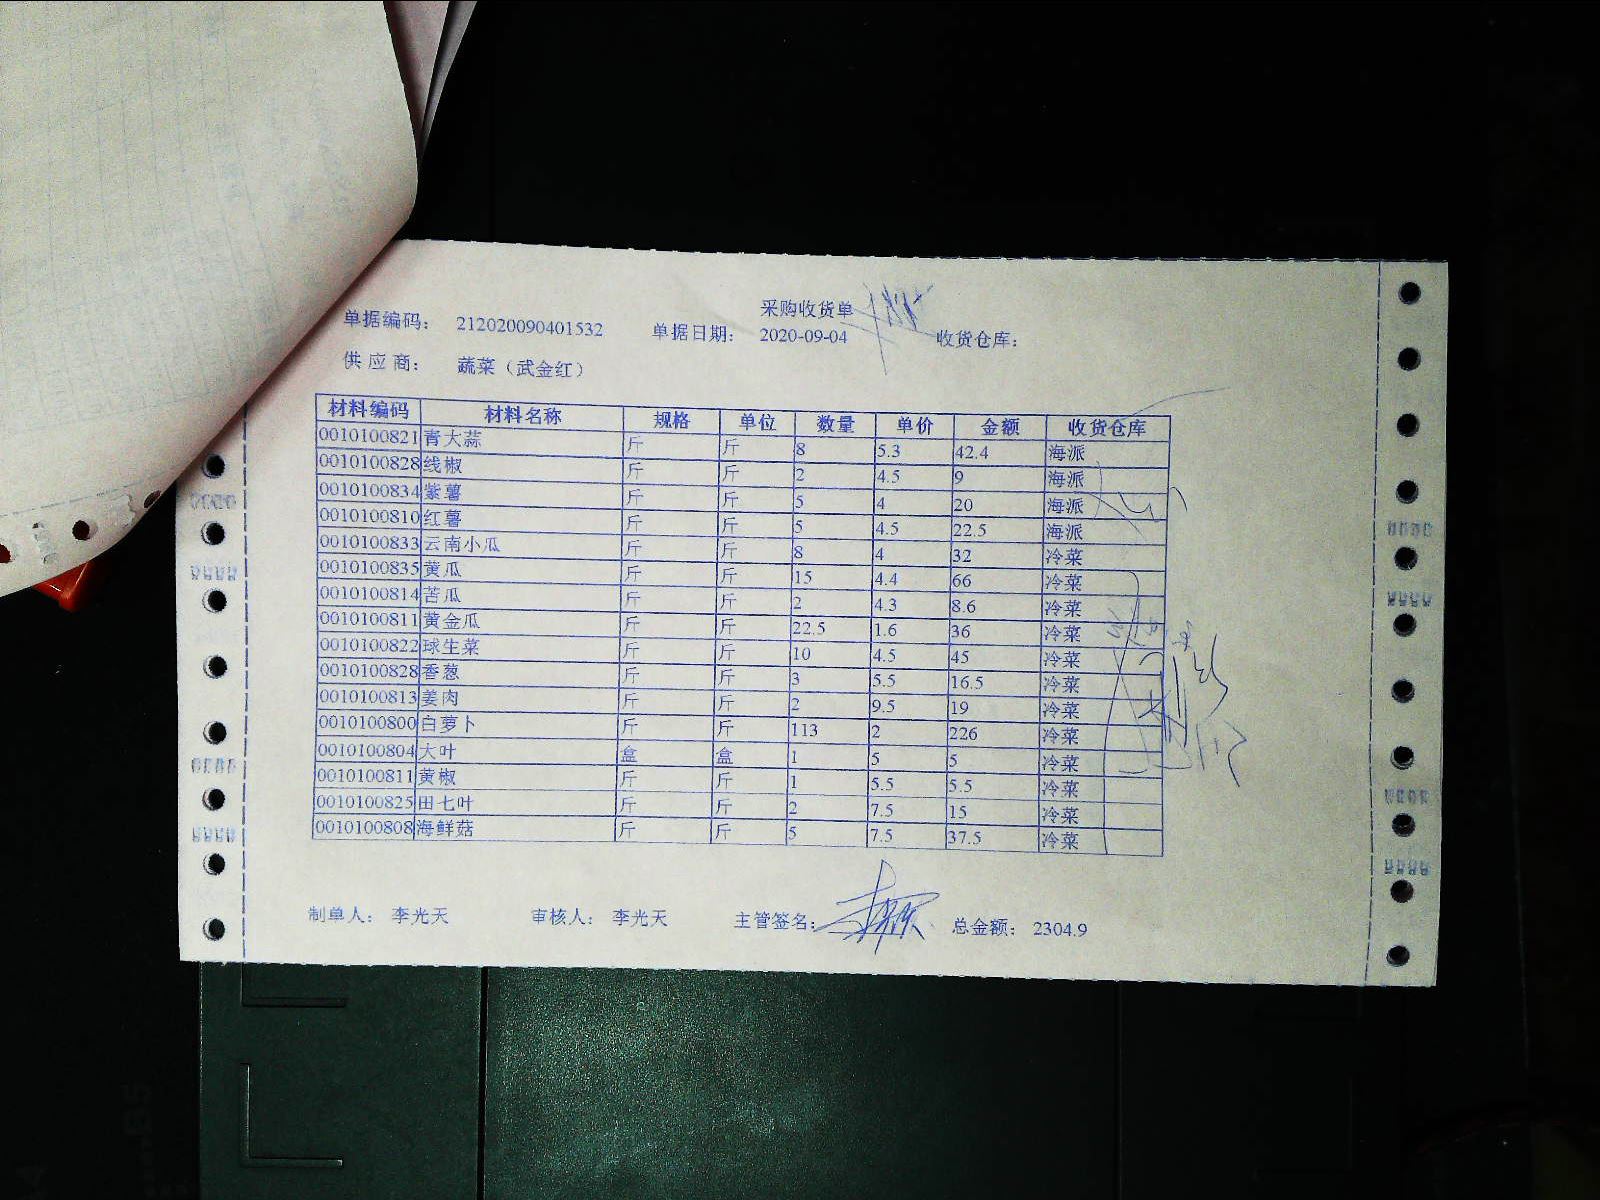 采购收货单
单据编码： 212020090401532 单据日期： 2020-09-04 收货仓库：
供 应 商： 蔬菜（武金红）
材料编码 材料名称 规格 单位 数量 单价 金额 收货仓库
0010100821 青大蒜 斤 斤 8 5.3 42.4 海派
0010100828 线椒 斤 斤 2 4.5 9 海派
0010100834 紫薯 斤 斤 5 4 20 海派
0010100810 红薯 斤 斤 5 4.5 22.5 海派
0010100833 云南小瓜 斤 斤 8 4 32 冷菜
0010100835 黄瓜 斤 斤 15 4.4 66 冷菜
0010100814 苦瓜 斤 斤 2 4.3 8.6 冷菜
0010100811 黄金瓜 斤 斤 22.5 1.6 36 冷菜
0010100822 球生菜 斤 斤 10 4.5 45 冷菜
0010100828 香葱 斤 斤 3 5.5 16.5 冷菜
0010100813 姜肉 斤 斤 2 9.5 19 冷菜
0010100800 白萝卜 斤 斤 113 2 226 冷菜
0010100804 大叶 盒 盒 1 5 5 冷菜
0010100811 黄椒 斤 斤 1 5.5 5.5 冷菜
0010100825 田七叶 斤 斤 2 7.5 15 冷菜
0010100808 海鲜菇 斤 斤 5 7.5 37.5 冷菜
制单人： 李光天 审核人： 李光天 主管签名： 总金额： 2304.9